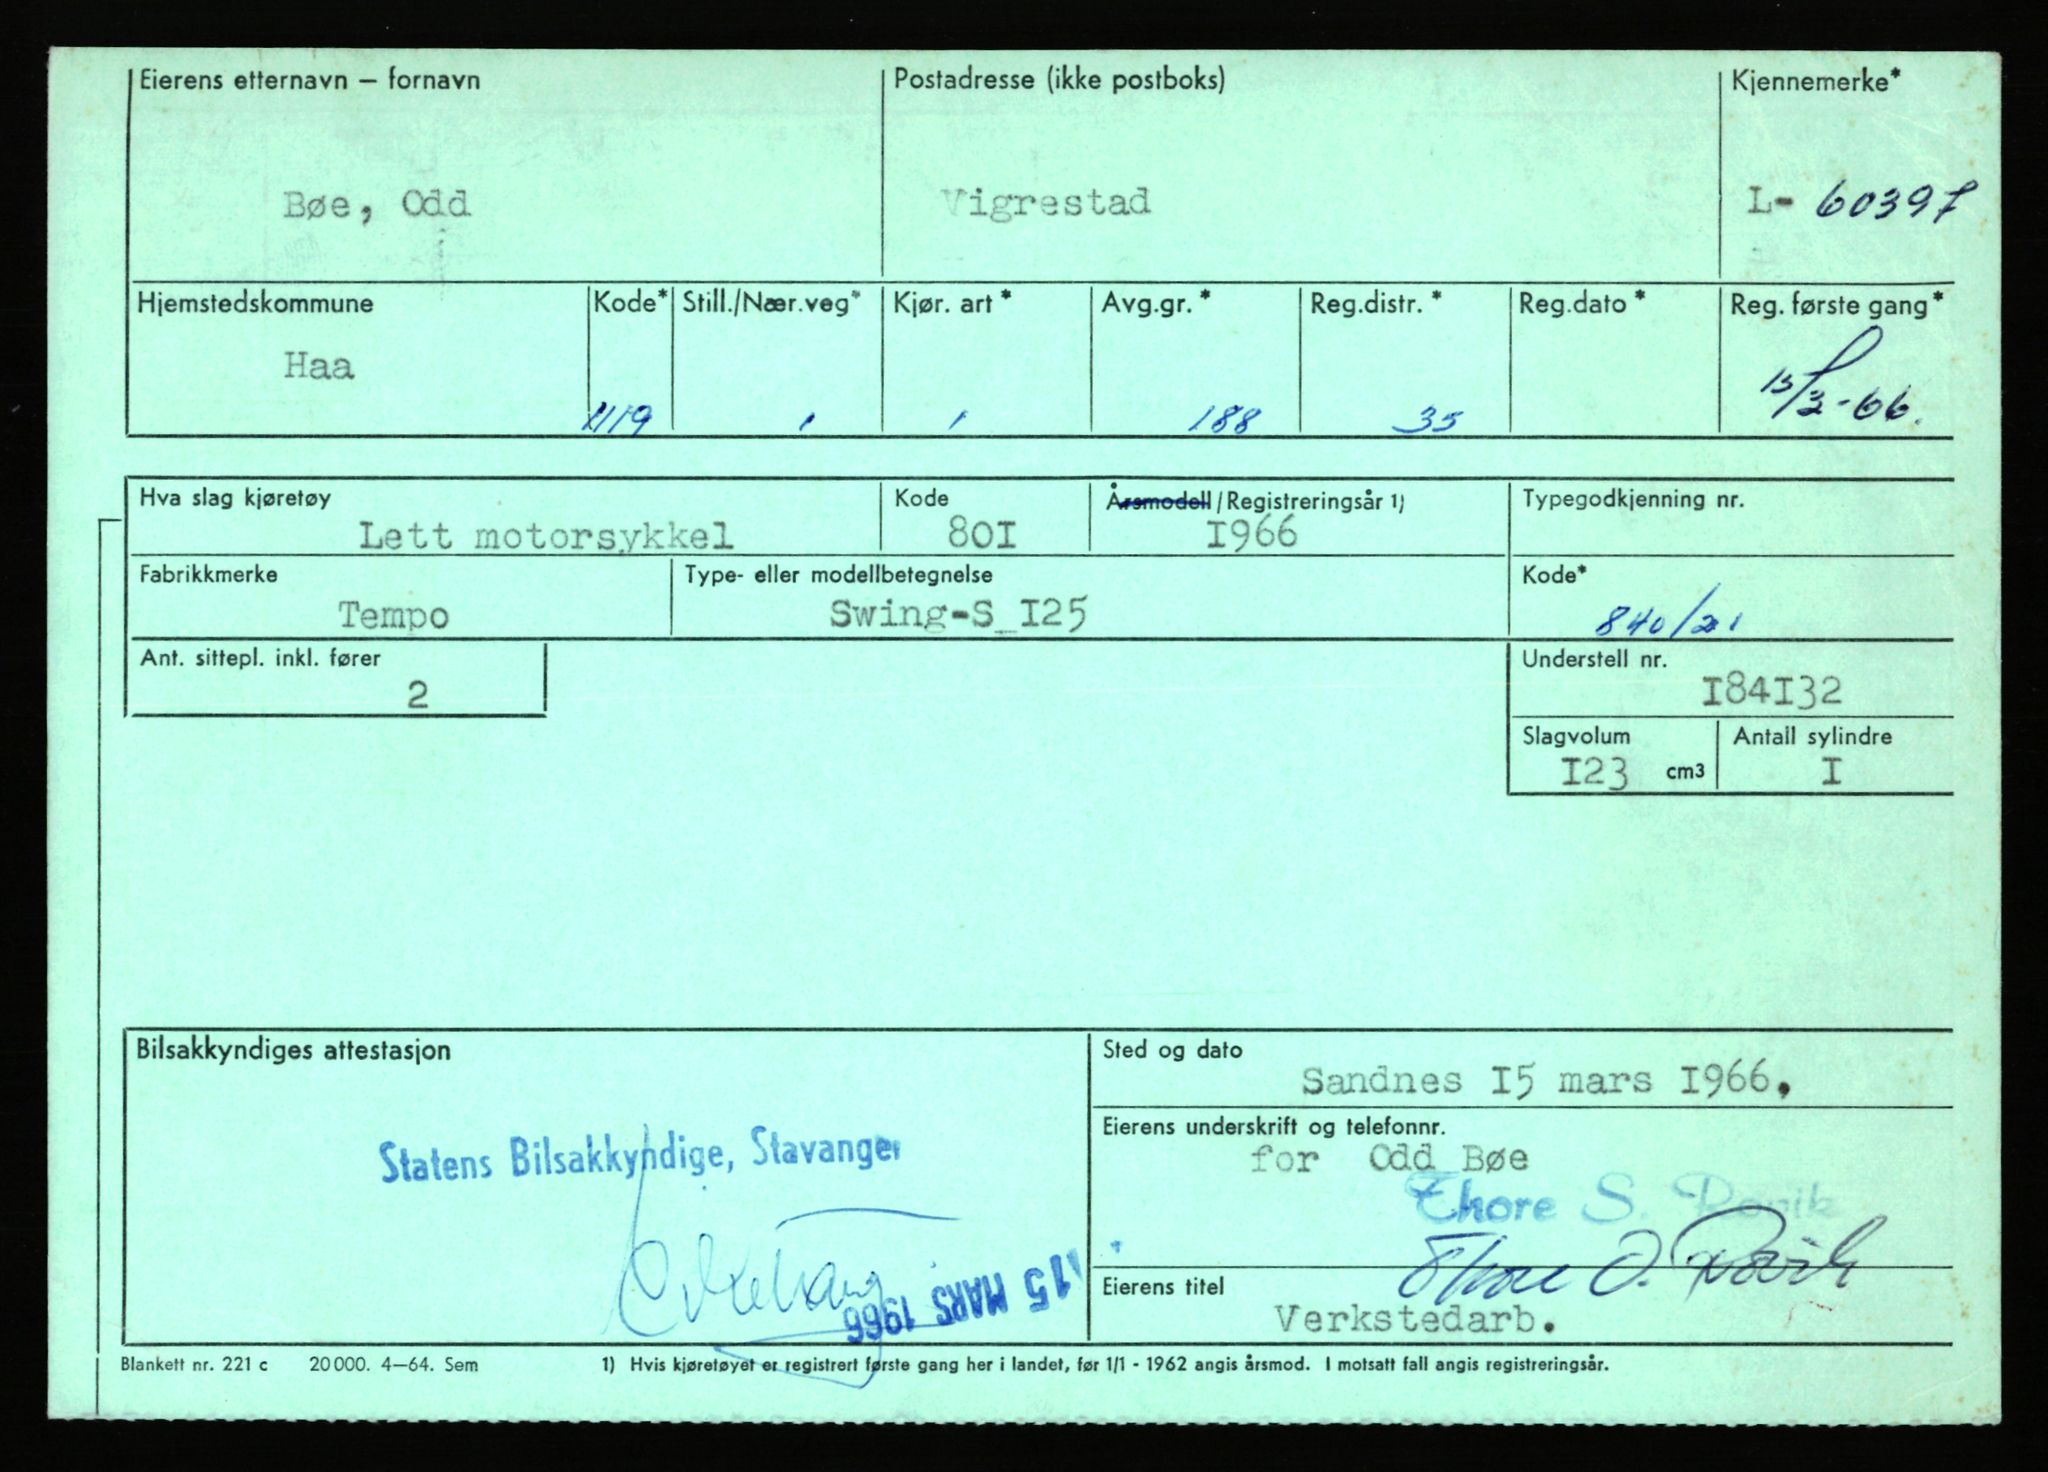 Eierens etternavn – fornavn
Postadresse (ikke postboks)
Kjennemerke*
Bøe, Odd
Vigrestad
L- 60397
Hjemstedskommune
Kode*
Still./Nær.veg*
Kjør. art *
Avg.gr. *
Reg.distr. *
Reg.dato *
Reg. første gang*
Haa
1119
1
1
188
35
15/3-66.
Hva slag kjøretøy
Kode
Årsmodell / Registreringsår 1)
Typegodkjenning nr.
Lett motorsykkel
80I
I966
Fabrikkmerke
Type- eller modellbetegnelse
Kode*
Tempo
Swing-S I25
840/21
Ant. sittepl. inkl. fører
2
Understell nr.
I84I32
Slagvolum
Antall sylindre
I23 cm3
I
Bilsakkyndiges attestasjon
Sted og dato
Sandnes I5 mars I966.
Eierens underskrift og telefonnr.
for Odd Bøe
Statens Bilsakkyndige, Stavanger
Thore S. Rovik
15 MARS 1966
Eierens titel
Verkstedarb.
Blankett nr. 221 c 20 000. 4–64. Sem
1) Hvis kjøretøyet er registrert første gang her i landet, før 1/1 - 1962 angis årsmod. I motsatt fall angis registreringsår.